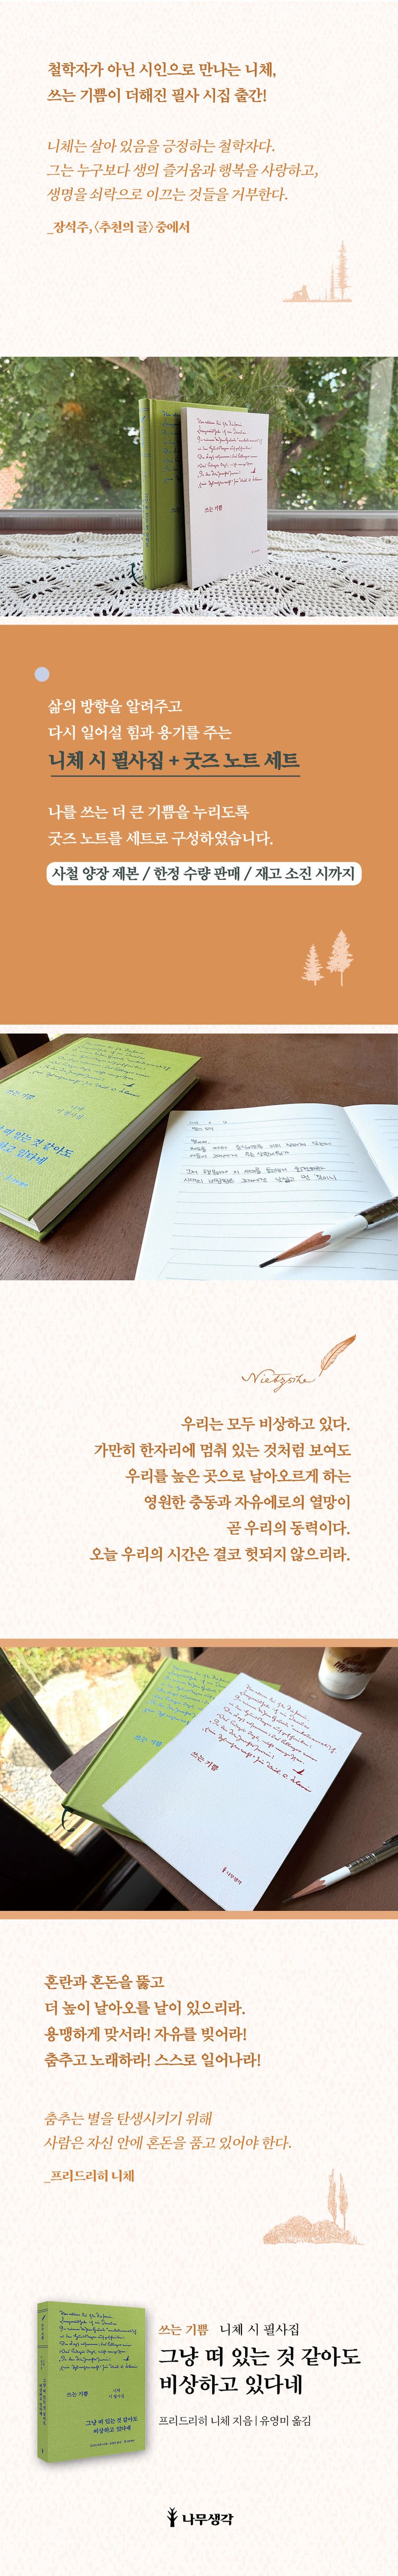 철학자가 아닌 시인으로 만나는 니체,
쓰는 기쁨이 더해진 필사 시집 출간!
니체는 살아 있음을 긍정하는 철학자다.
그는 누구보다 생의 즐거움과 행복을 사랑하고,
생명을 쇠락으로 이끄는 것들을 거부한다.
_장석주, 〈추천의 글〉 중에서
쓰는 기쁨
삶의 방향을 알려주고
다시 일어설 힘과 용기를 주는
니체 시 필사집 + 굿즈 노트 세트
나를 쓰는 더 큰 기쁨을 누리도록
굿즈 노트를 세트로 구성하였습니다.
사철 양장 제본 / 한정 수량 판매 / 재고 소진 시까지
쓰는 기쁨
Nietzsche
우리는 모두 비상하고 있다.
가만히 한자리에 멈춰 있는 것처럼 보여도
우리를 높은 곳으로 날아오르게 하는
영원한 충동과 자유에로의 열망이
곧 우리의 동력이다.
오늘 우리의 시간은 결코 헛되지 않으리라.
쓰는 기쁨
쓰는 기쁨
나무생각
혼란과 혼돈을 뚫고
더 높이 날아오를 날이 있으리라.
용맹하게 맞서라! 자유를 빚어라!
춤추고 노래하라! 스스로 일어나라!
춤추는 별을 탄생시키기 위해
사람은 자신 안에 혼돈을 품고 있어야 한다.
_프리드리히 니체
쓰는 기쁨
니체
시 필사집
그냥 떠 있는 것 같아도
비상하고 있다네
쓰는 기쁨 니체 시 필사집
그냥 떠 있는 것 같아도
비상하고 있다네
프리드리히 니체 지음 | 유영미 옮김
나무생각